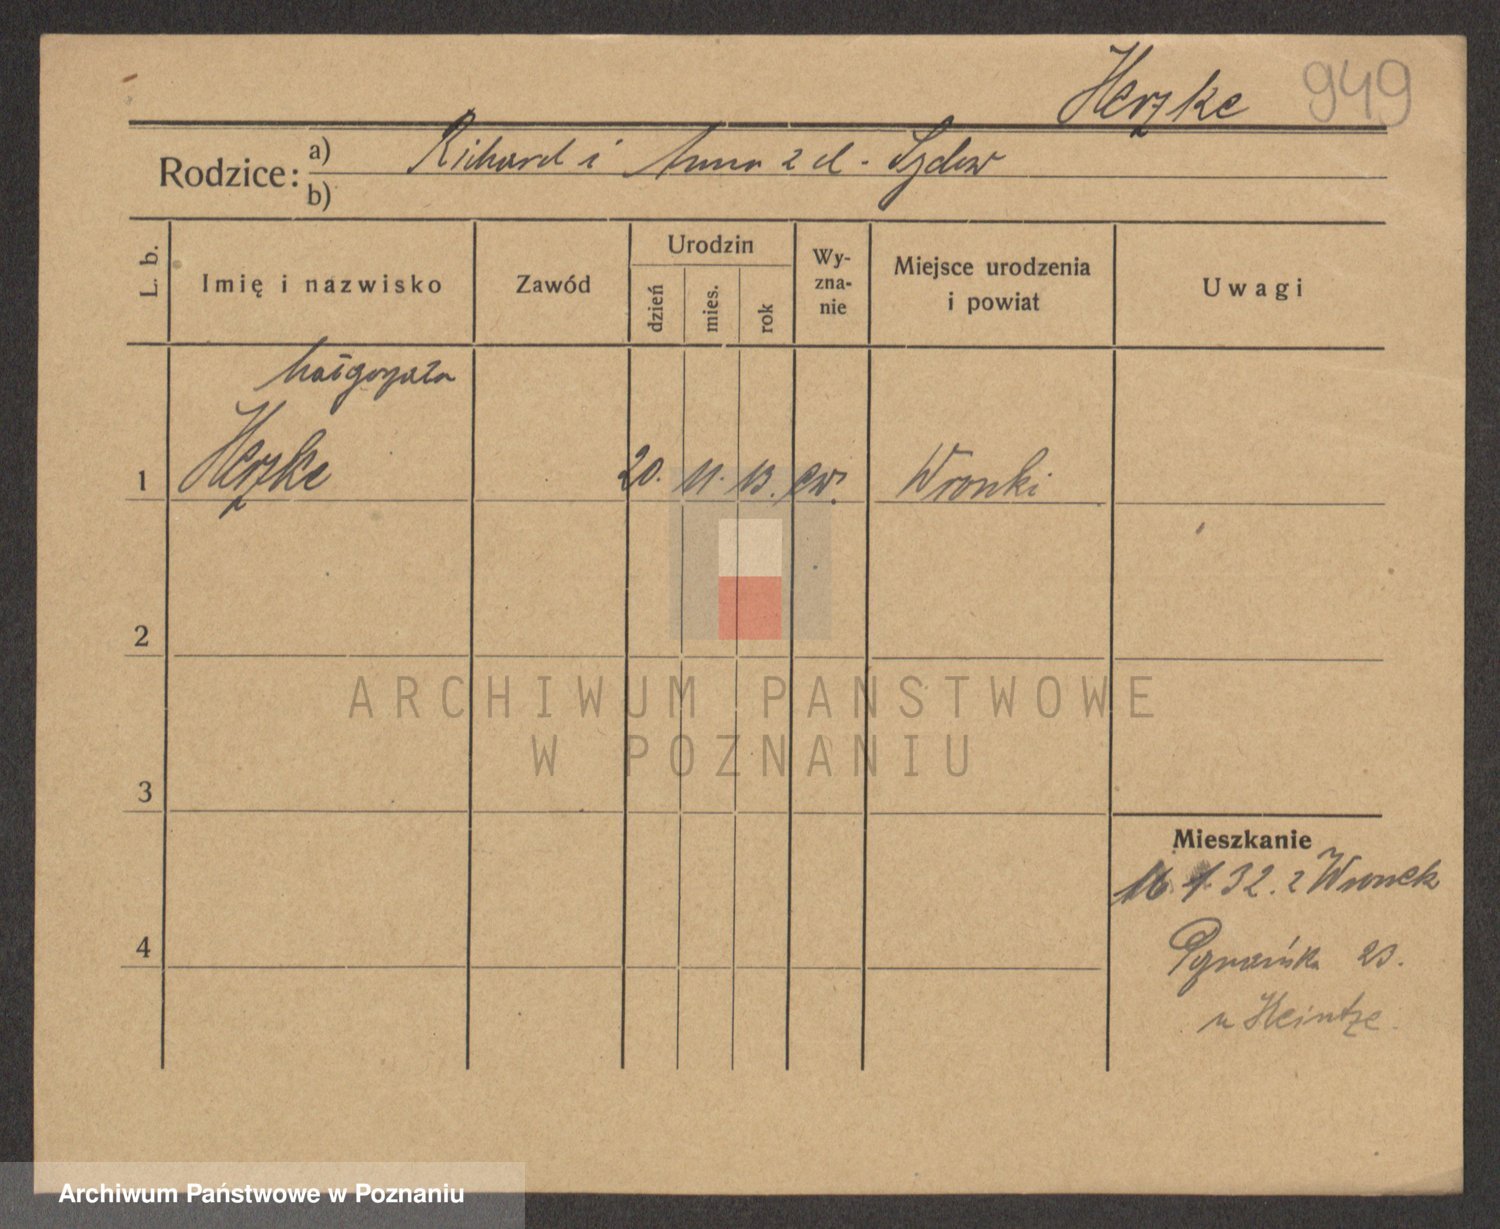 Herzke 949
Rodzice: a) Richard i Anna z d. Sydow
b)
L. b. Imię i nazwisko Zawód Urodzin dzień mies. rok Wy-zna-nie Miejsce urodzenia i powiat Uwagi
Małgorzata
1 Herzke 20. 11. 13. ew. Wronki
2
3
4
Mieszkanie
16. 1. 32. z Wronek
23.
u Heintze
ARCHIWUM PAŃSTWOWE
W POZNANIU
Archiwum Państwowe w Poznaniu